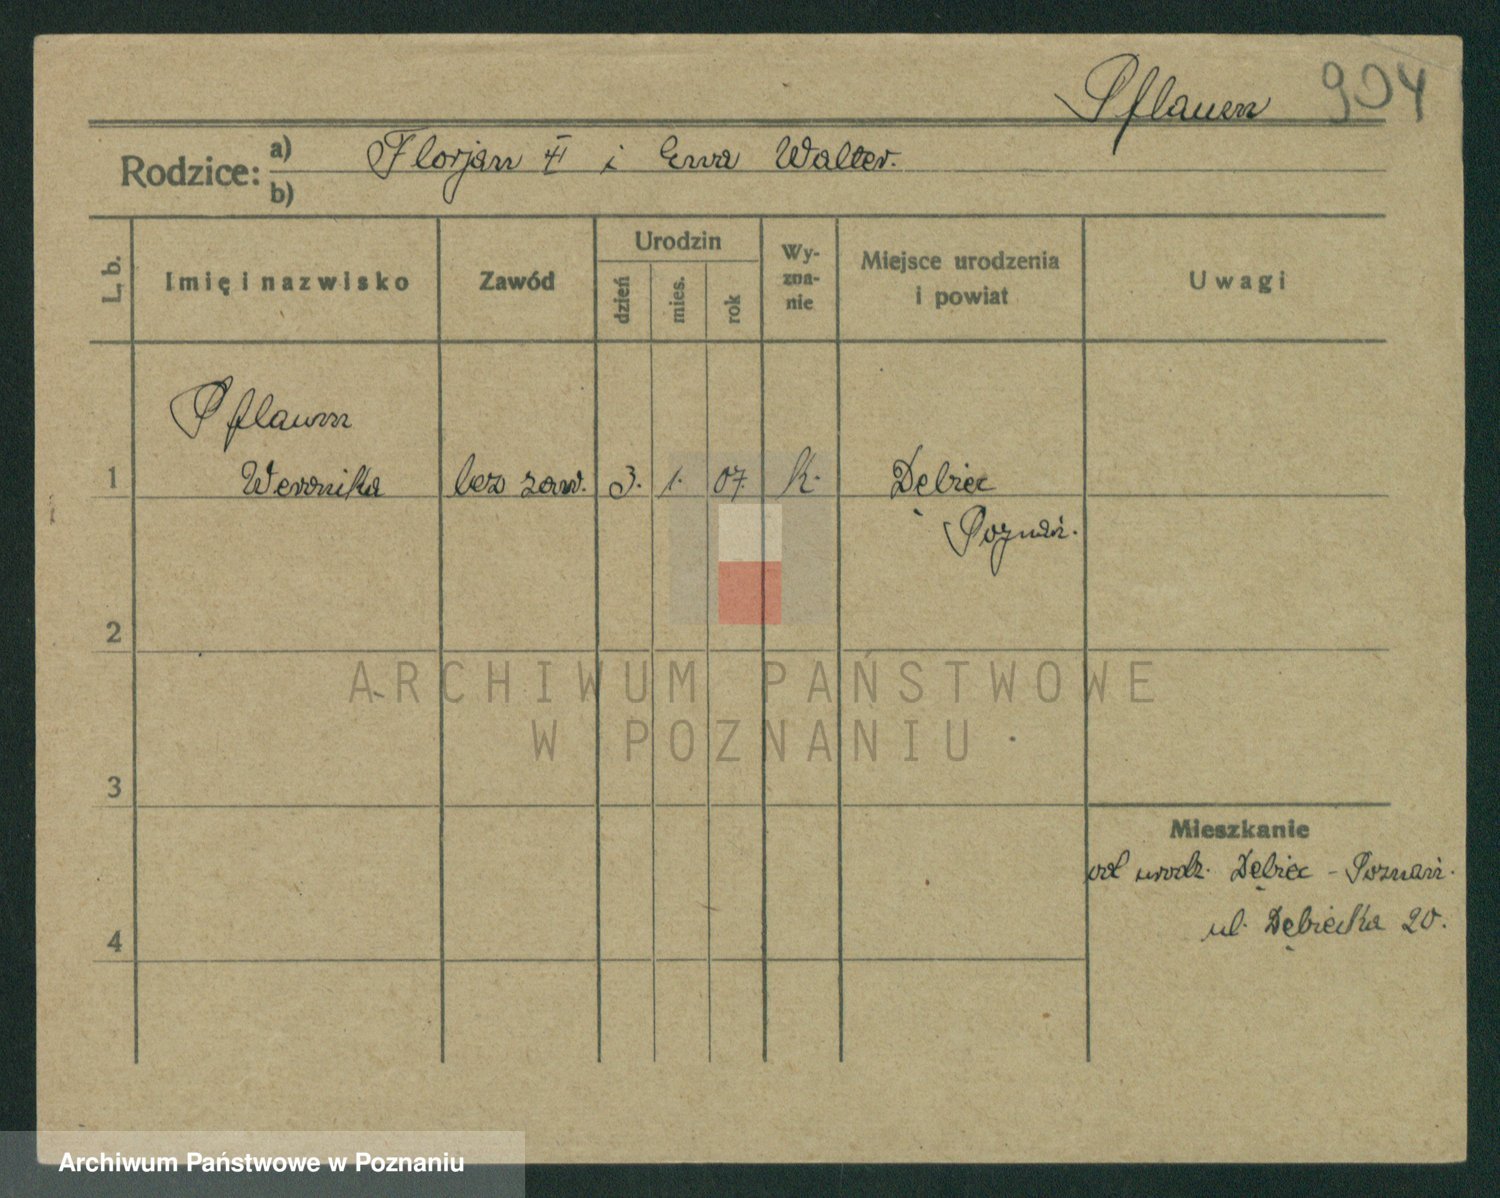 Pflaum 904
Rodzice: a) Florjan II i Ewa Walter.
b)
L. b.
Imię i nazwisko
Zawód
Urodzin
dzień
mies.
rok
Wy-
zna-
nie
Miejsce urodzenia
i powiat
Uwagi
Pflaum
1 Weronika bez zaw. 3. 1. 07. k. Dębiec
Poznań.
2
ARCHIWUM PAŃSTWOWE
W POZNANIU
3
Mieszkanie
od urodz. Dębiec - Poznań.
ul. Dębiecka 20.
4
Archiwum Państwowe w Poznaniu